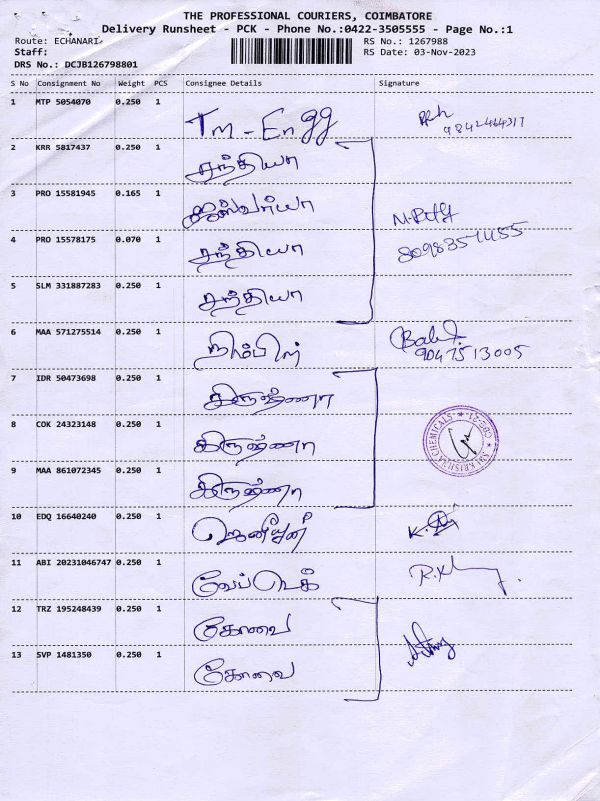 THE PROFESSIONAL COURIERS, COIMBATORE
Delivery Runsheet - PCK - Phone No.:0422-3505555 - Page No.:1
Route: ECHANARI RS No.: 1267988
Staff: RS Date: 03-Nov-2023
DRS No.: DCJB126798801
S No Consignment No Weight PCS Consignee Details Signature
1 MTP 5054070 0.250 1 Tm - Engg
2 KRR 5817437 0.250 1 சந்தியா
3 PRO 15581945 0.165 1 ஐஸ்வர்யா
4 PRO 15578175 0.070 1 சந்தியா
8098351455
5 SLM 331887283 0.250 1 சந்தியா
6 MAA 571275514 0.250 1
9047513005
7 IDR 50473698 0.250 1 கிருஷ்ணா
8 COK 24323148 0.250 1 கிருஷ்ணா
SRI KRISHNA CHEMICALS * CBE-21 *
9 MAA 861072345 0.250 1 கிருஷ்ணா
10 EDQ 16640240 0.250 1
11 ABI 20231046747 0.250 1 வேப்டெக்
12 TRZ 195248439 0.250 1 கோவை
13 SVP 1481350 0.250 1 கோவை